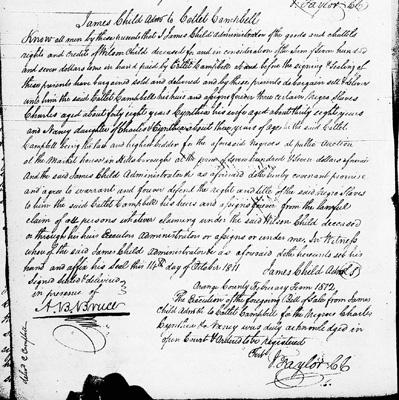 J Taylor CC
James Child Admr to Catlet Campbell
Know all men by these presents that I James Child Administrator of the goods and chattels
rights and credits of Wilson Child deceased for and in consideration of the sum of seven hundred
and seven dollars to me in hand paid by Catlet Campbell at and before the signing & sealing of
these presents have bargained sold and delivered and by these presents do bargain sell & deliver
unto him the said Catlet Campbell his heirs and assigns forever three certain Negro Slaves
Charles aged about forty eight years Cynthia his wife aged about thirty eight years
and Nancy daughter of Charles & Cynthia about three years of age he the said Catlet
Campbell being the last and highest bidder for the aforesaid Negroes at public auction
at the Market house in Hillsborough at the sum of seven hundred & seven dollars aforesaid
And the said James Child Administrator as aforesaid doth hereby covenant promise
and agree to warrant and forever defend the right and title of the said Negro Slaves
to him the said Catlet Campbell his heirs and assigns forever from the lawful
claim of all persons whatever claiming under the said Wilson Child deceased
or through his heirs Executors Administrators or assigns or under me, In Witness
whereof the said James Child Administrator as aforesaid doth hereunto set his
hand and affix his Seal this 14th day of October 1811
James Child Admr
Signed sealed & delivered
in presence
A. B. Bruce
Orange County February Term 1812
The Execution of the foregoing Bill of Sale from James
Child Admr to Catlet Campbell for the Negroes Charles
Cynthia & Nancy was duly acknowledged in
open Court & Ordered to be registered
Test
J Taylor CC